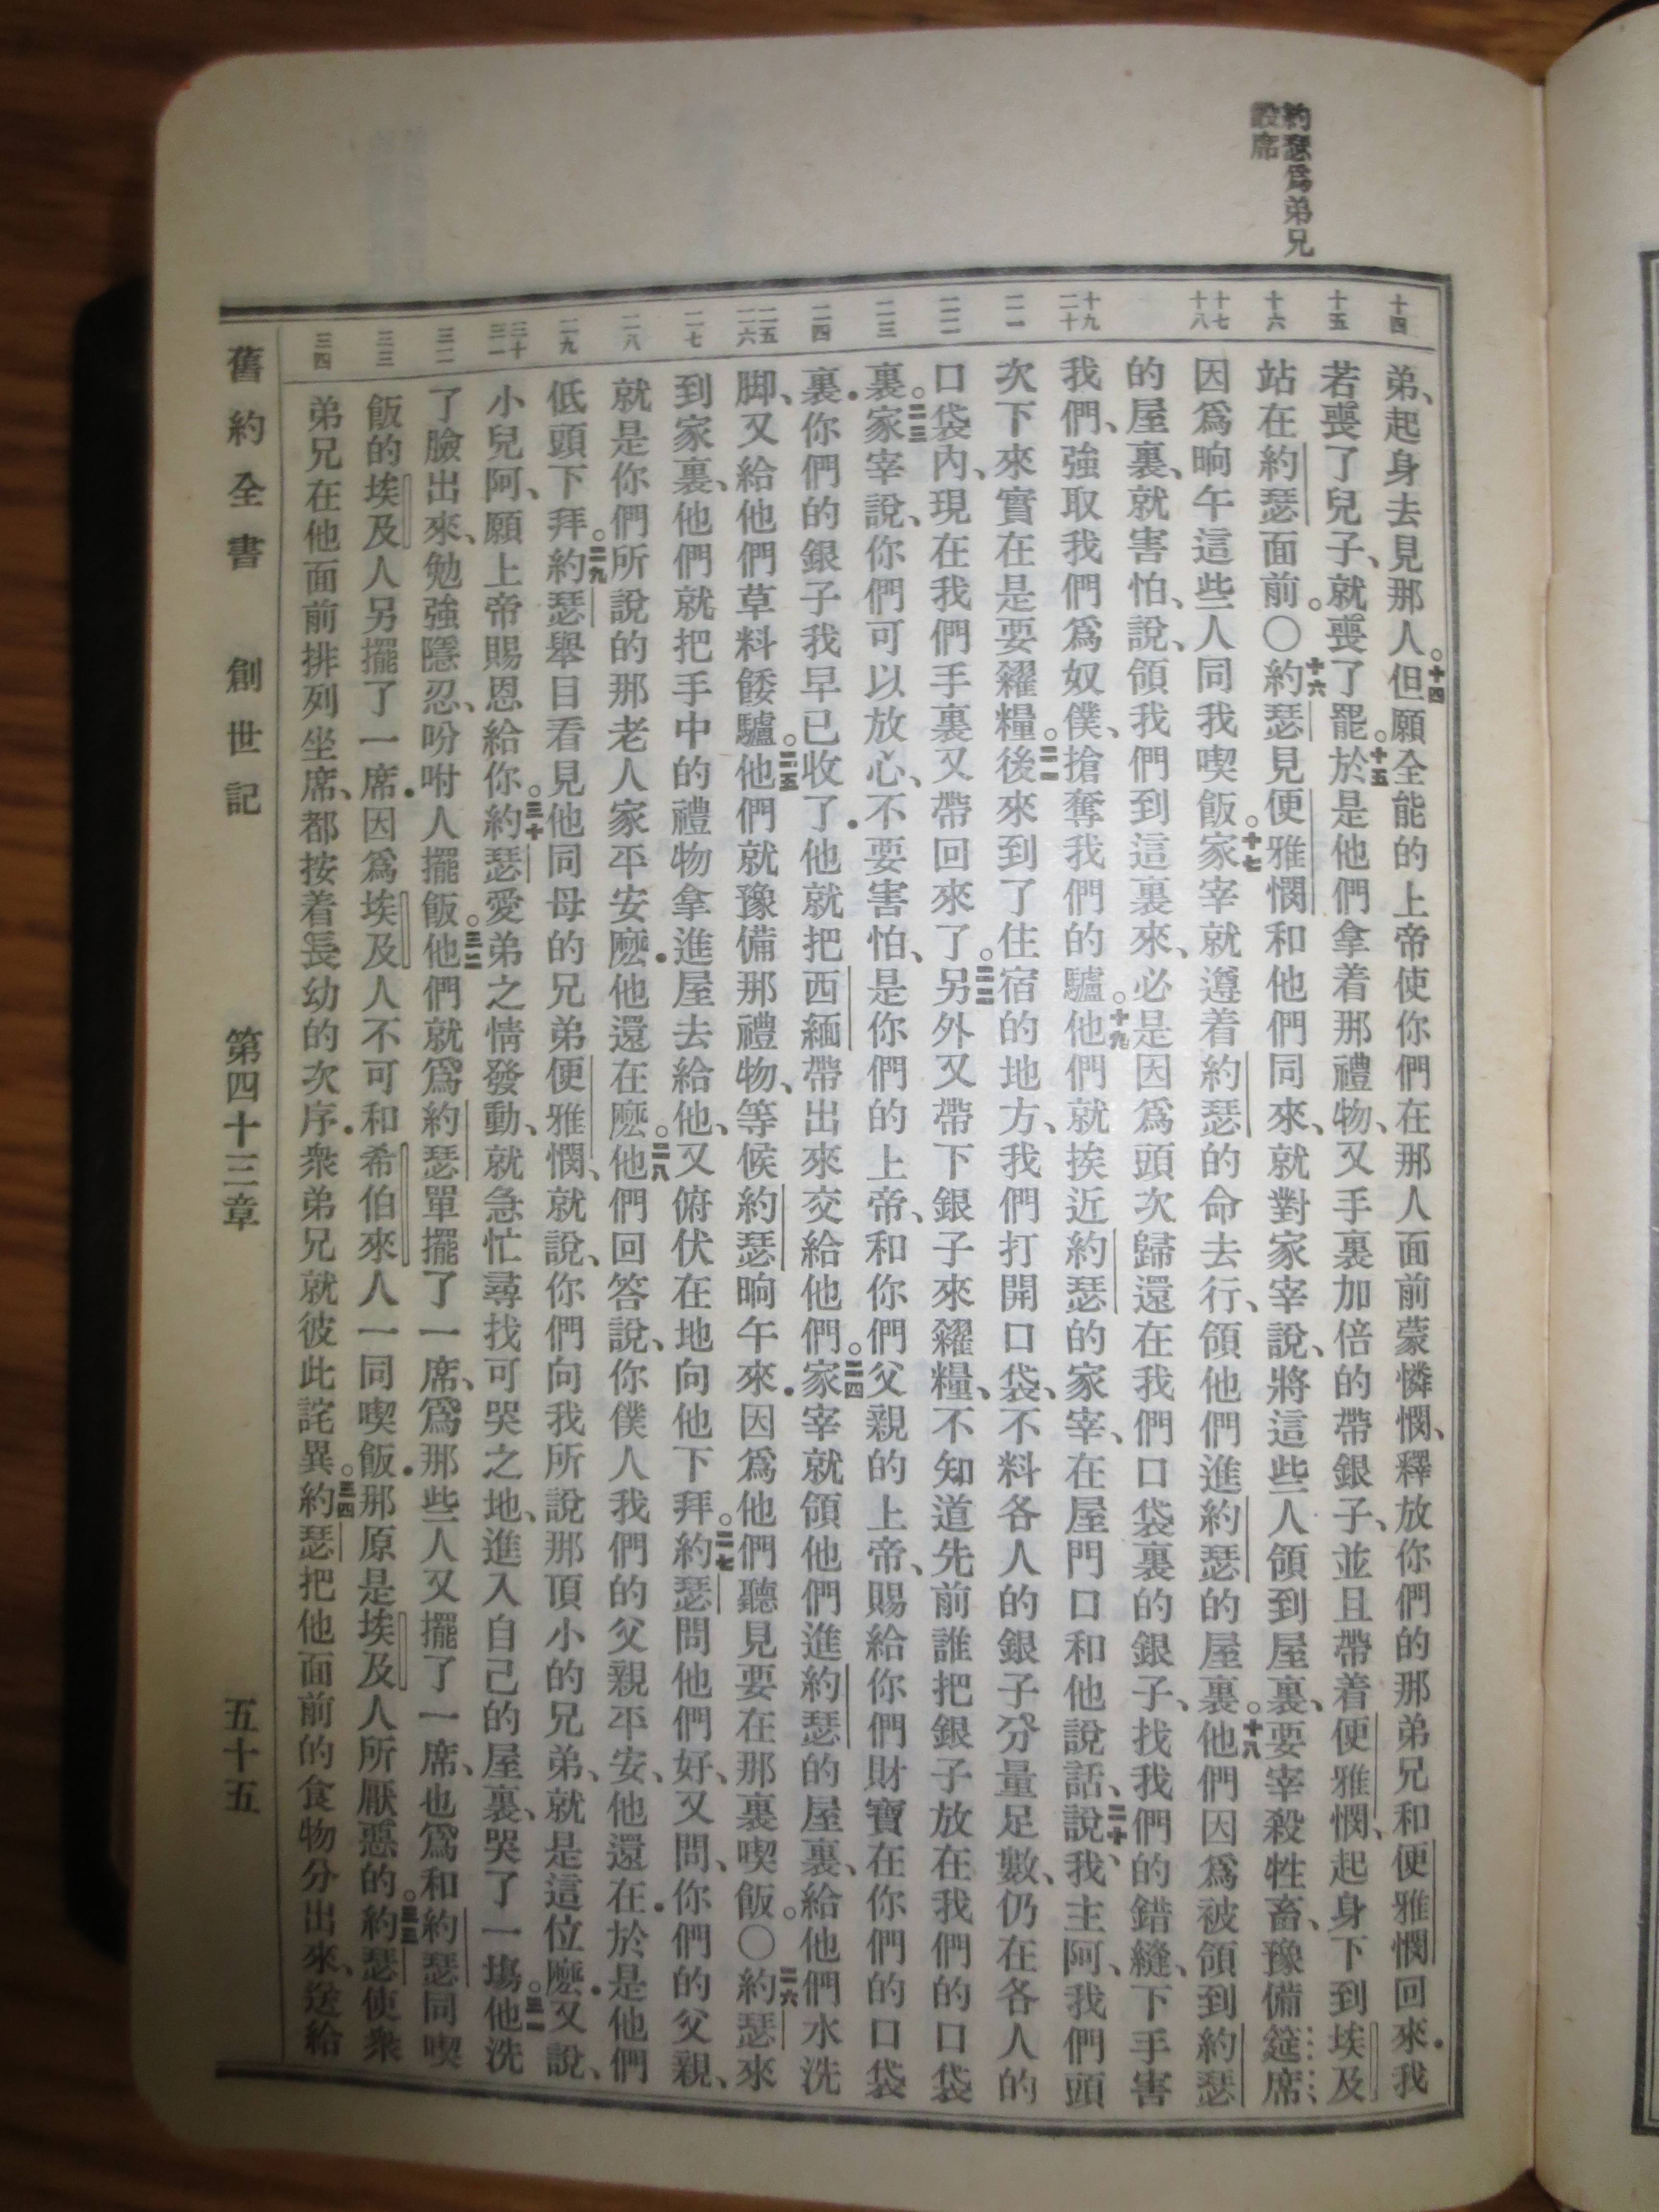 約瑟爲弟兄
設席
十四
十五
十六
十七
十八
十九
二十
二一
二二
二三
二四
二五
二六
二七
二八
二九
三十
三一
三二
三三
三四
弟、起身去見那人。十四但願全能的上帝使你們在那人面前蒙憐憫、釋放你們的那弟兄和便雅憫回來．我
若喪了兒子、就喪了罷。十五於是他們拿着那禮物、又手裏加倍的帶銀子、並且帶着便雅憫、起身下到埃及
站在約瑟面前。〇十六約瑟見便雅憫和他們同來、就對家宰說、將這些人領到屋裏、要宰殺牲畜、豫備筵席
因爲晌午這些人同我喫飯。十七家宰就遵着約瑟的命去行、領他們進約瑟的屋裏。十八他們因爲被領到約瑟
的屋裏、就害怕、說、領我們到這裏來、必是因爲頭次歸還在我們口袋裏的銀子、找我們的錯縫、下手害
我們、強取我們爲奴僕、搶奪我們的驢。十九他們就挨近約瑟的家宰、在屋門口和他說話、二十說、我主阿、我們頭
次下來實在是要糴糧。二一後來到了住宿的地方、我們打開口袋、不料各人的銀子、分量足數、仍在各人的
口袋內、現在我們手裏又帶回來了。二二另外又帶下銀子來糴糧、不知道先前誰把銀子放在我們的口袋
裏。二三家宰說、你們可以放心、不要害怕、是你們的上帝、和你們父親的上帝、賜給你們財寶在你們的口袋
裏．你們的銀子我早已收了．他就把西緬帶出來交給他們。二四家宰就領他們進約瑟的屋裏、給他們水洗
脚、又給他們草料餧驢。二五他們就豫備那禮物、等候約瑟晌午來．因爲他們聽見要在那裏喫飯。〇二六約瑟來
到家裏、他們就把手中的禮物拿進屋去給他、又俯伏在地向他下拜。二七約瑟問他們好、又問、你們的父親、
就是你們所說的那老人家平安麽．他還在麽。二八他們回答說、你僕人我們的父親平安、他還在．於是他們
低頭下拜。二九約瑟舉目看見他同母的兄弟便雅憫、就說、你們向我所說那頂小的兄弟、就是這位麽．又說、
小兒阿、願上帝賜恩給你。三十約瑟愛弟之情發動、就急忙尋找可哭之地、進入自己的屋裏、哭了一塲。三一他洗
了臉出來、勉強隱忍、吩咐人擺飯。三二他們就爲約瑟單擺了一席、爲那些人又擺了一席、也爲和約瑟同喫
飯的埃及人另擺了一席．因爲埃及人不可和希伯來人一同喫飯．那原是埃及人所厭惡的。三三約瑟使衆
弟兄在他面前排列坐席、都按着長幼的次序．衆弟兄就彼此詫異。三四約瑟把他面前的食物分出來、送給
舊約全書　創世記　第四十三章　五十五